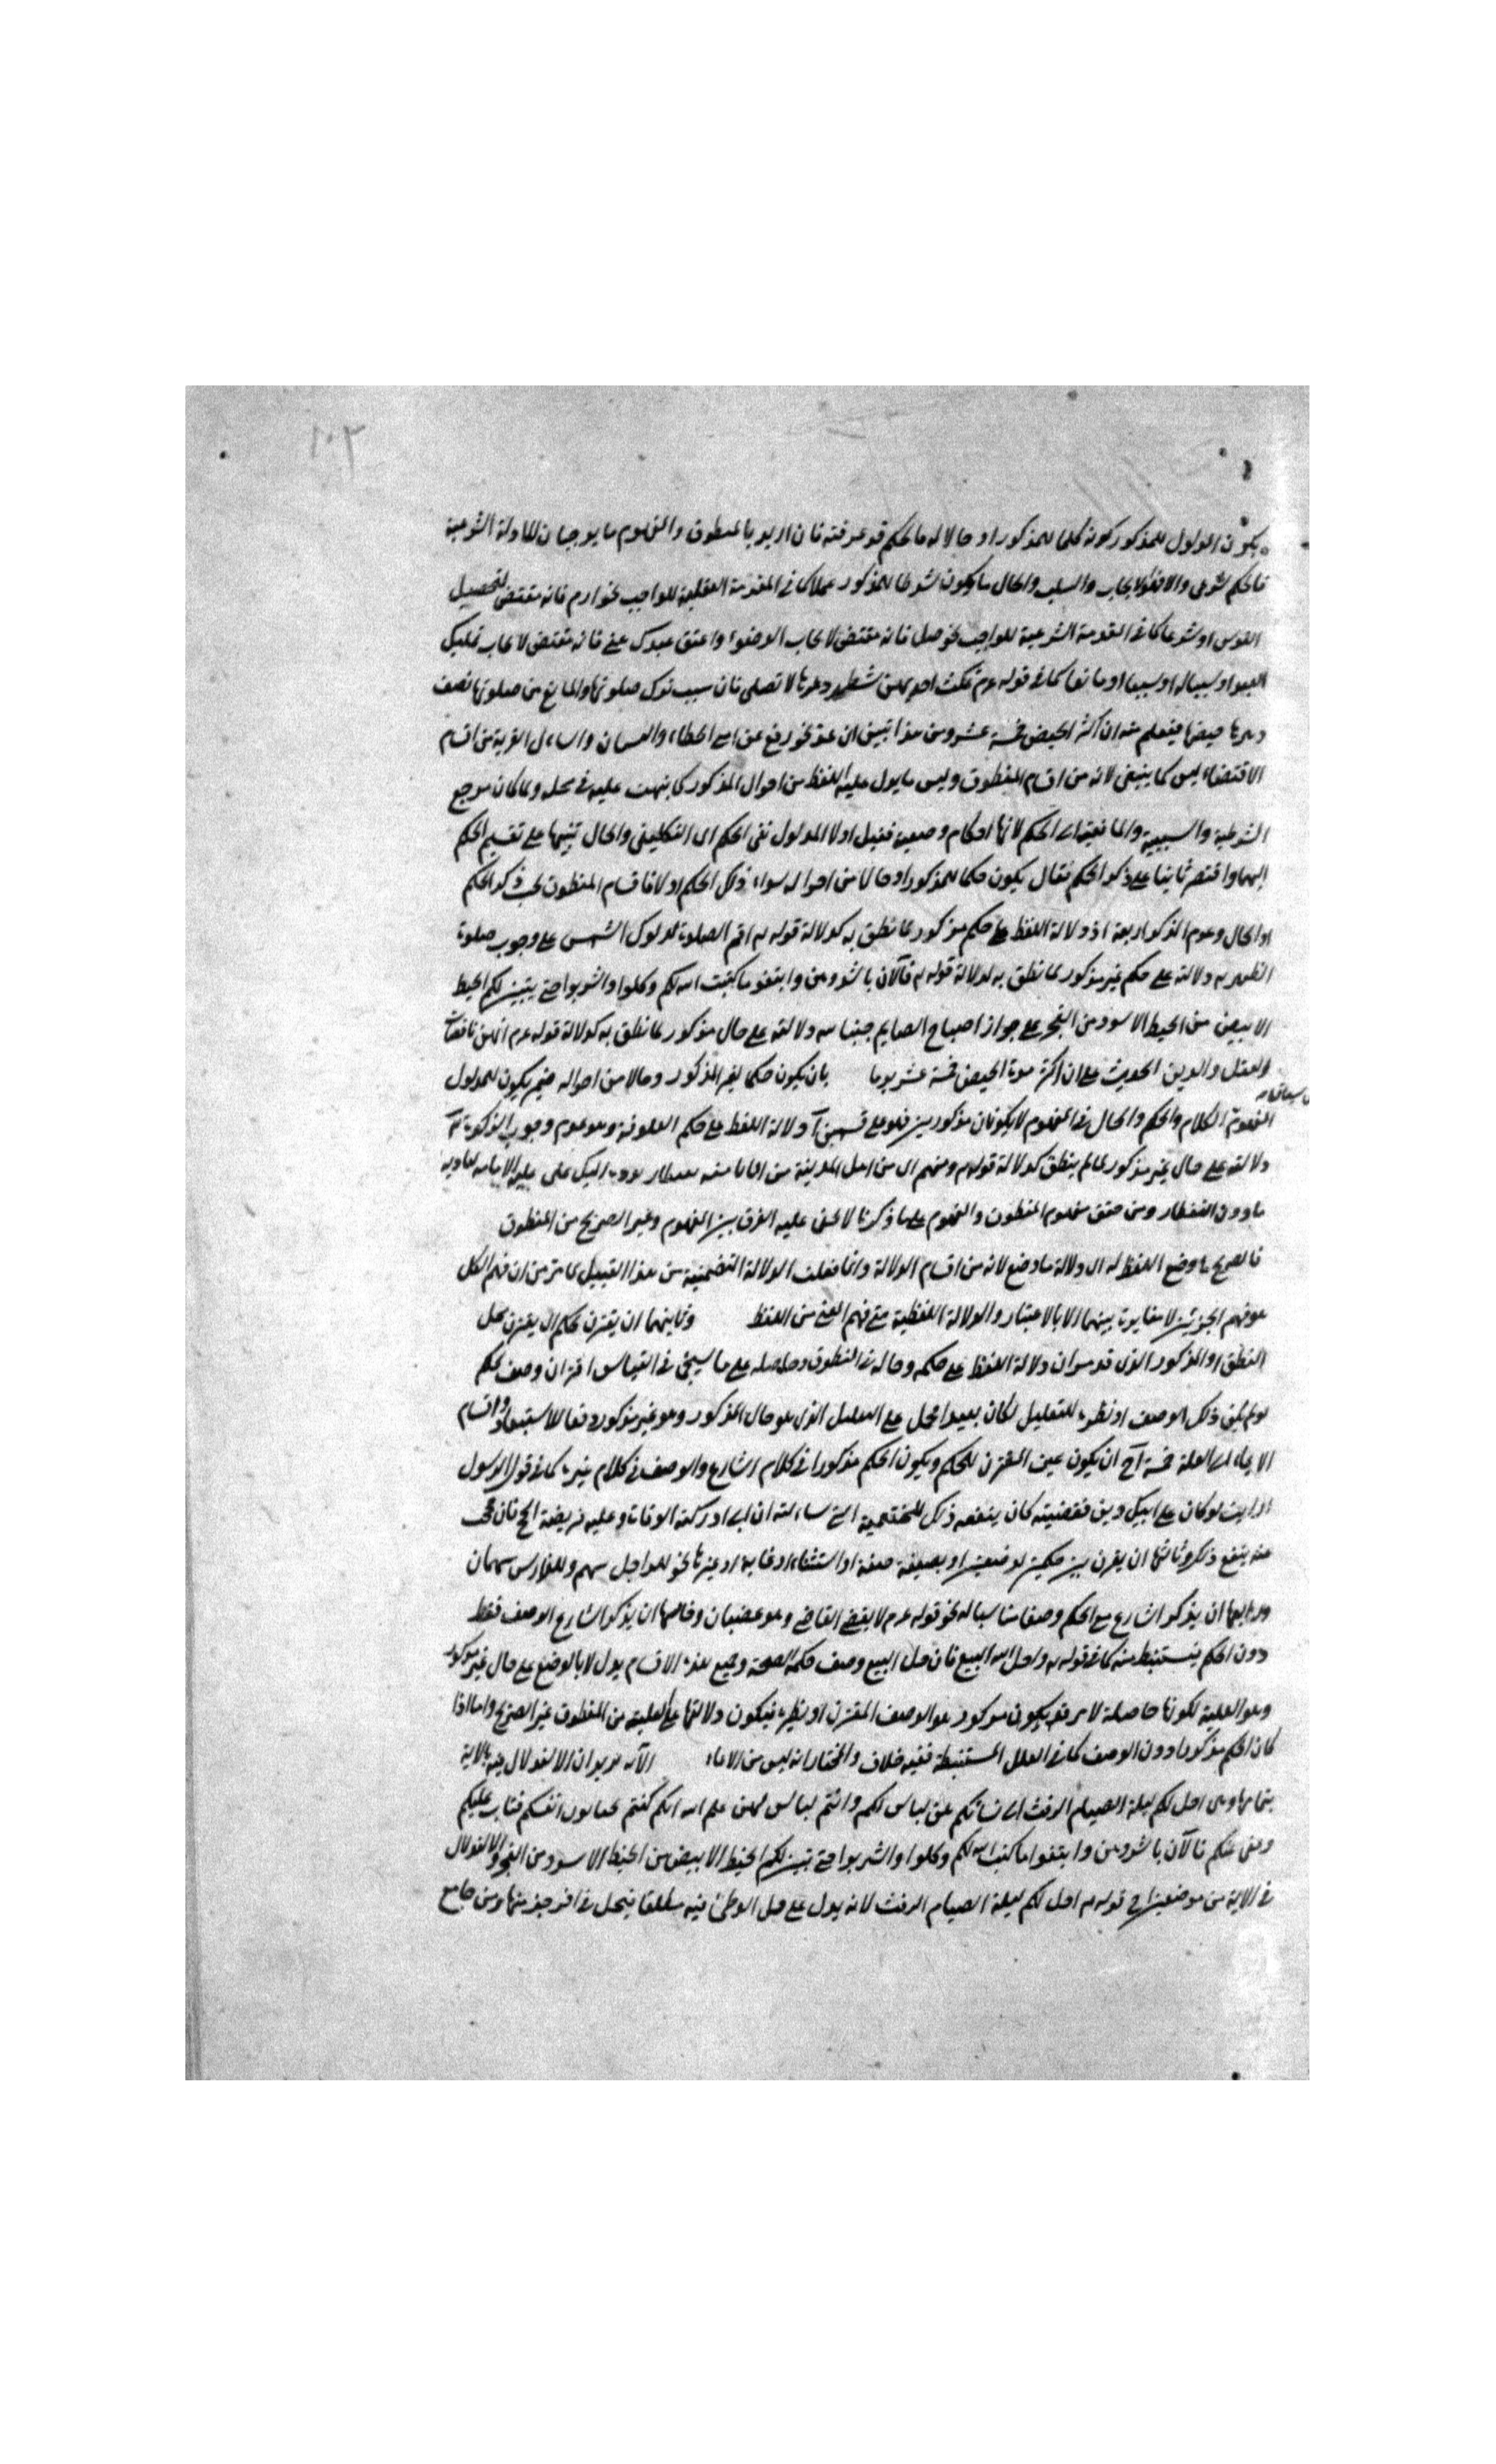 يكون المدلول للمذكور كونه حكما للمذكور او حالا له فالحكم قد عرفته فان اريد بالمنطوق والمفهوم ما يوجدان للادلة الشرعية
فالحكم شرعي والا فكالايجاب والسلب والحال ما يكون شرطا للمذكور عقلا كما في المقدمة العقلية للواجب نحو ارم فانه مقتضى لتحصيل
القوس او شرعا كما في المقدمة الشرعية للواجب نحو صل فانه مقتضى لايجاب الوضوء واعتق عبدك عني فانه مقتضى لايجاب تمليك
العبد او سببا له او سببيا او مانعا كما في قوله عم تمكث احديهن شطر دهرها لا تصلى فان سبب ترك صلوتها والمانع من صلوتها نصف
دهرها حيضها فيعلم منه ان اكثر الحيض خمسة عشر ومن هذا تبين ان عد نحو رفع عن امتي الخطاء والنسيان واسأل القرية من اقسام
الاقتضاء ليس كما ينبغي لانه من اقسام المنطوق وليس ما يدل عليه اللفظ من احوال المذكور كما نبهت عليه في محله ولما كان مرجع
الشرطية والسببية والمانعية الى الحكم لانها احكام وضعية فنيل اولا المدلول نفى الحكم اى التكليفى والحال تنبيها على تقسيم الحكم
اليهما واقتصر ثانيا على ذكر الحكم فقال يكون حكما للمذكور او حالا من احواله سواء ذلك الحكم اولا فاقسام المنطوق بحسب ذكر الحكم
او الحال وعدم الذكر اربعة ا دلالة اللفظ على حكم مذكور مما نطق به كدلالة قوله تم اقم الصلوة لدلوك الشمس على وجوب صلوة
الظهر ب دلالته على حكم غير مذكور مما نطق به كدلالة قوله تم فالآن باشروهن وابتغوا ما كتب الله لكم وكلوا واشربوا حتى يتبين لكم الخيط
الابيض من الخيط الاسود من الفجر على جواز اصباح الصايم جنبا ج دلالته على حال مذكور مما نطق به كدلالة قوله عم انهن ناقصات
العقل والدين الحديث على ان اكثر مدة الحيض خمسة عشر يوما بان يكون حكما لغير المذكور وحالا من احواله ضمير يكون للمدلول
المفهوم الكلام والحكم والحال في المفهوم لا يكونان مذكورين فهو على قسمين آ دلالة اللفظ على حكم العلوفة وهو عدم وجوب الزكوة ب
دلالته على حال غير مذكور مما لم ينطق كدلالة قوله تم ومنهم اى من اهل المدينة من ان تأمنه بقنطار يؤده اليك على عليه الامانة لتأدية
ما دون القنطار ومن حقق مفهوم المنطوق والمفهوم على ما ذكرنا لا يخفى عليه الفرق بين المفهوم وغير الصريح من المنطوق
فالصريح ما وضع اللفظ له اى دلالة ما وضع لانه من اقسام الدلالة وانما فعلت الدلالة التضمنية من هذا القبيل لما مر من ان فهم الكل
هو فهم الجزئين لا مغايرة بينهما الا بالاعتبار والدلالة اللفظية متى فهم المعنى من اللفظ وثانيهما ان يقترن بحكم اى يقترن محل
النطق او المذكور الذى قد مر ان دلالة اللفظ على حكمه وحاله في المنطوق وحاصله على ما سيجئ في القياس اقتران وصف بحكم
لو لم يكن ذلك الوصف او نظيره للتعليل لكان بعيدا فحمل على التعليل الذى هو حال المذكور وهو غير مذكور دفعا للاستبعاد واقسام
الايماء الى العلة خمسة آ ان يكون عين المقترن للحكم ويكون الحكم مذكورا في كلام الشارع والوصف في كلام غيره كما في قول الرسول
ارايت لو كان على ابيك دين فقضيته كان ينفعه ذلك للخثعمية التي سالته ان ابى ادركته الوفات وعليه فريضة الحج فان حججت
عنه ينفع ذلك وثالثها ان يفرق بين حكمين لوصفين او بصيغة صفة او استثناء او غاية او غيرها نحو للراجل سهم وللفارس سهمان
ورابعها ان يذكر الشارع مع الحكم وصفا مناسبا له نحو قوله عم لا يقضى القاضى وهو غضبان وخامسها ان يذكر الشارع الوصف فقط
دون الحكم فيستنبط منه كما في قوله تم واحل الله البيع فان حل البيع وصف حكمه الصحة وجميع هذه الاقسام يدل لا بالوضع على حال غير مذكور
وهو العلية لكونها حاصلة لامر قد يكون مذكور هو الوصف المقترن او نظيره فيكون دلالتها على العلية من المنطوق غير الصريح واما اذا
كان الحكم مذكورا دون الوصف كما في العلل المستنبطة ففيه خلاف والمختار انه ليس من الايماء الآية يريد ان الاستدلال بهذه الآية
بتمامها وهى احل لكم ليلة الصيام الرفث الى نسائكم هن لباس لكم وانتم لباس لهن علم الله انكم كنتم تختانون انفسكم فتاب عليكم
وعفى عنكم فالآن باشروهن وابتغوا ما كتب الله لكم وكلوا واشربوا حتى يتبين لكم الخيط الابيض من الخيط الاسود من الفجر والاستدلال
في الآية من موضعين ا ح قوله تم احل لكم ليلة الصيام الرفث لانه يدل على حل الوطئ فيه مطلقا فيحل في اخر جزء منها ومن جامع